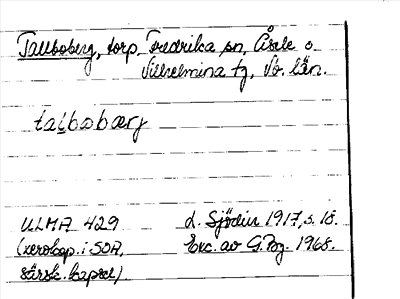 Tallboberg, torp, Fredrika sn, Åsele o
Vilhelmina tg, Vb. län.
talbobærj
ULMA 429
L. Sjödin 1917, s. 18.
(xerokop. i SOA,
Exc. av G. Pg. 1968.
särsk. kapsel)